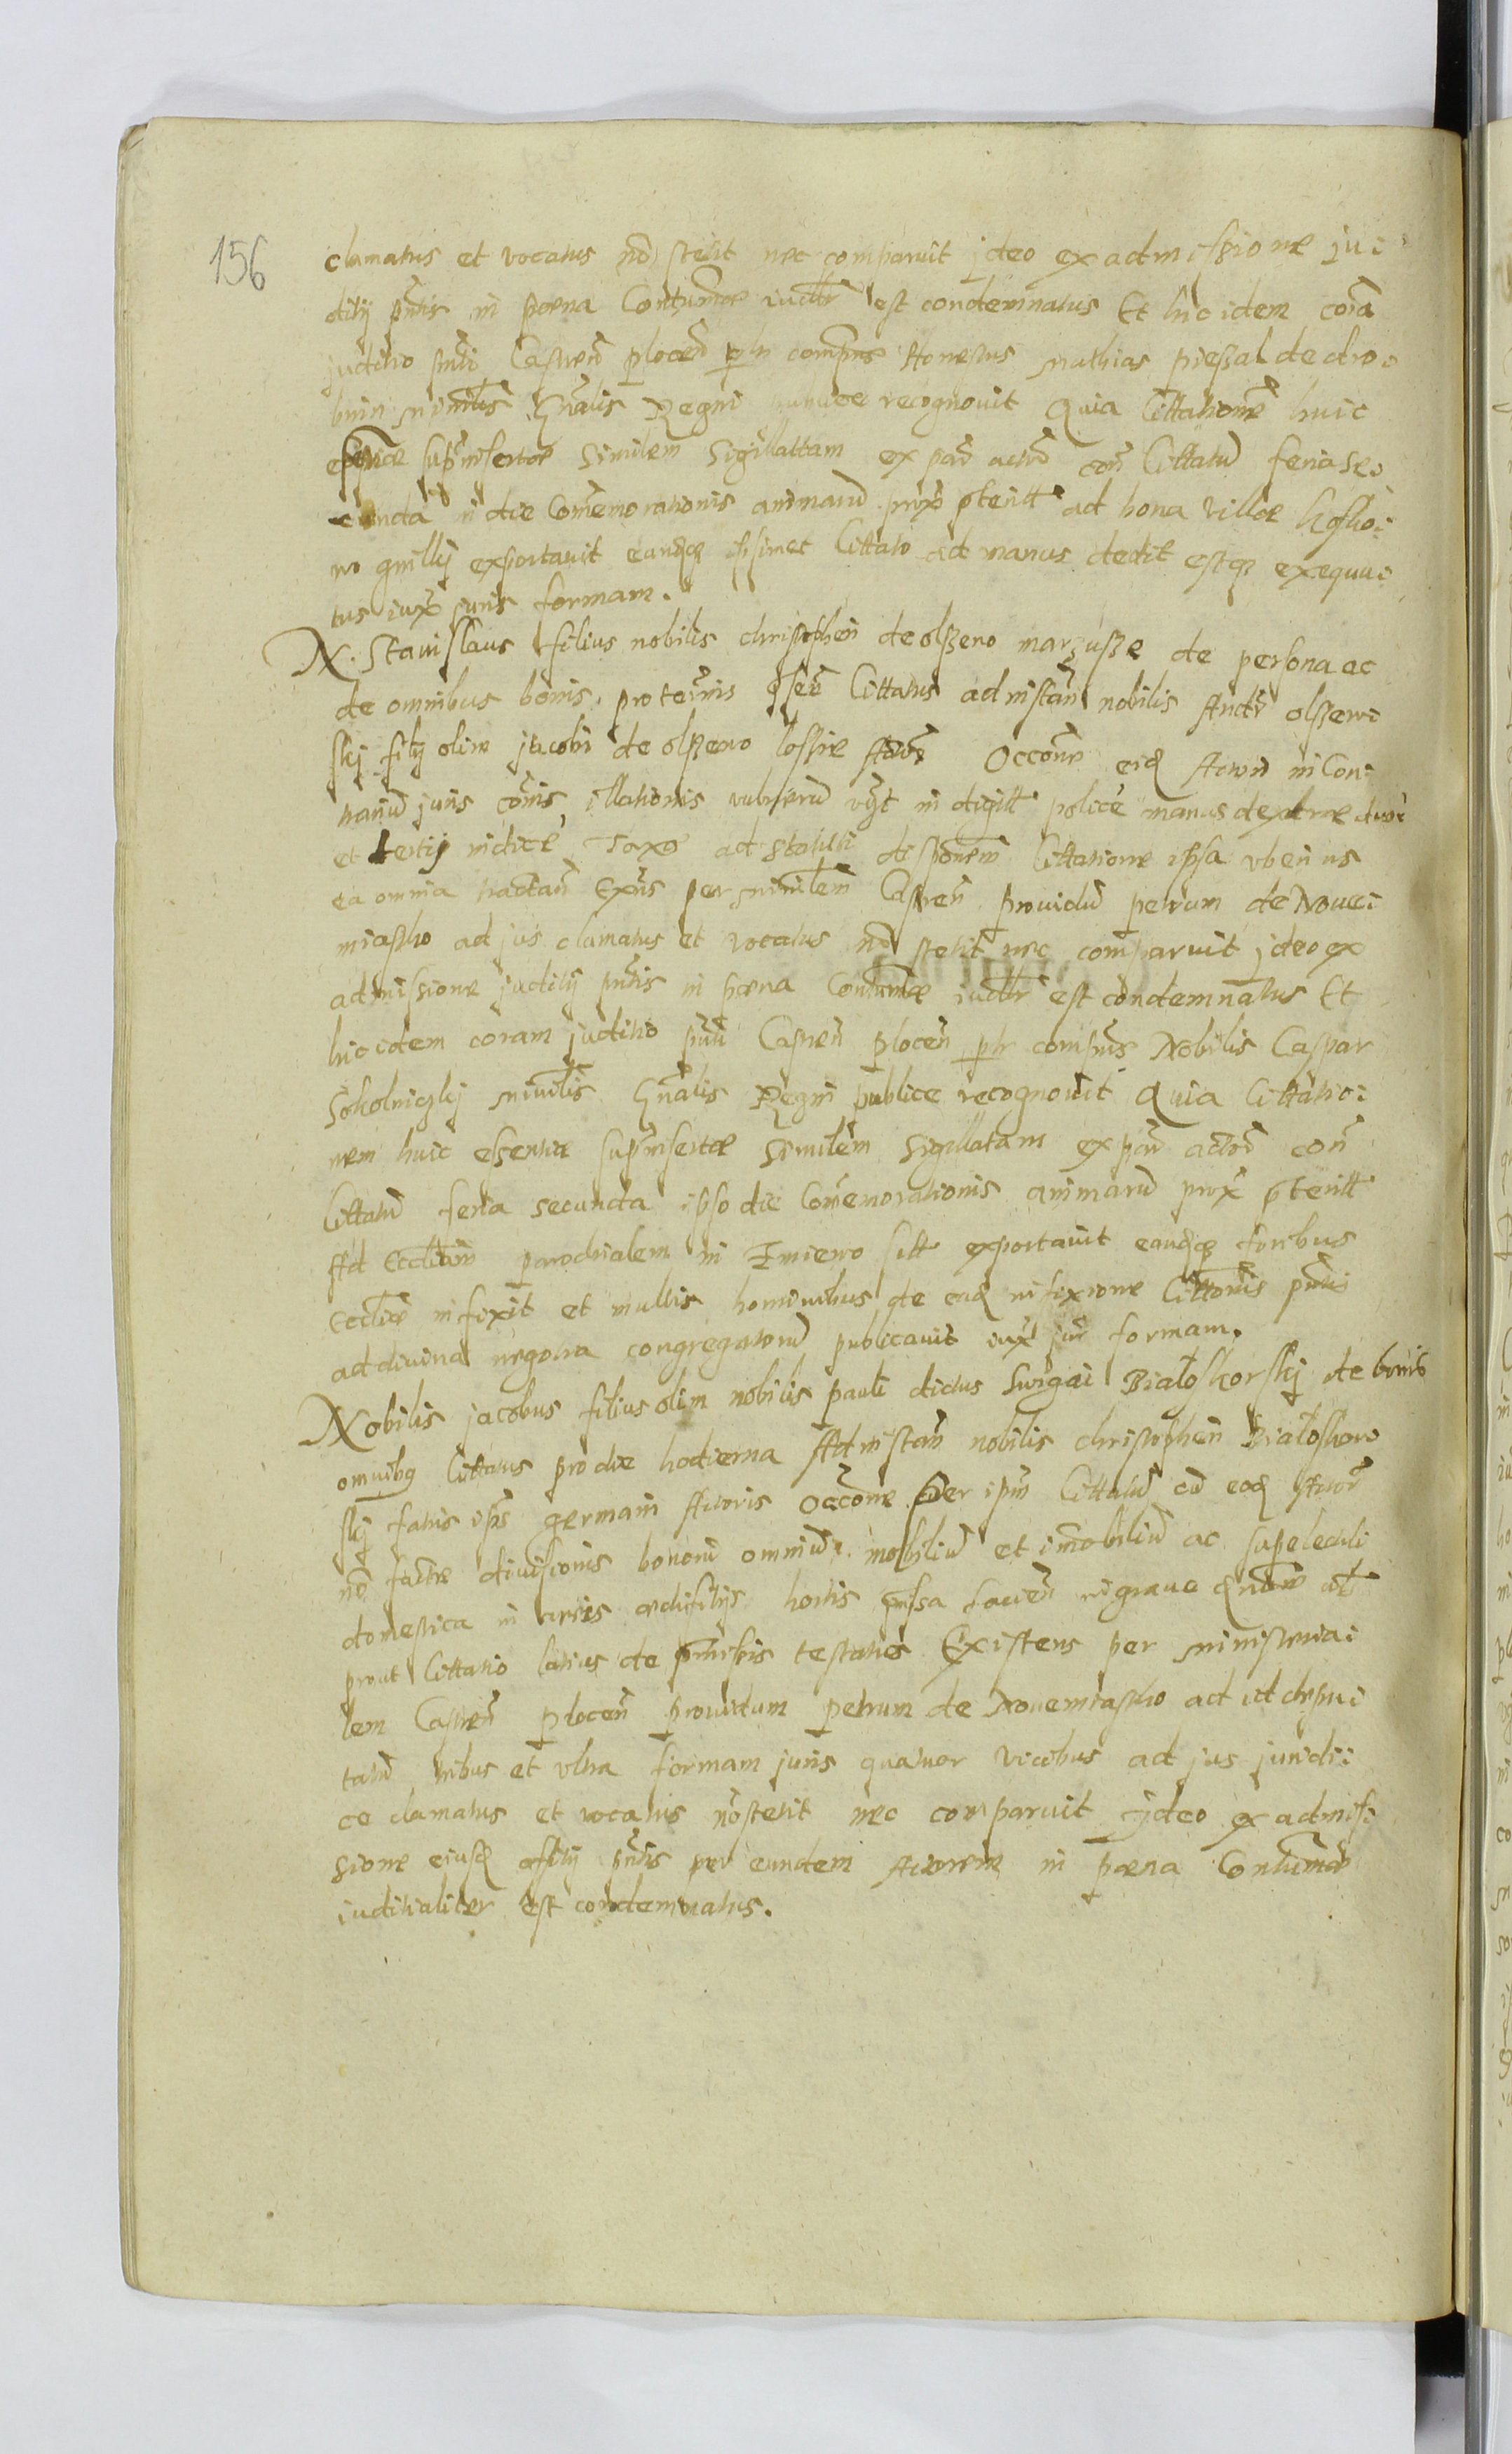 156
clamatus et vocatus nō stetit nec comparuit jdeo ex admissione ju:
ditij pn̄tis in poena Contumae iudlr est condemnatus Et hic idem corā
juditio pn̄ti Castren̄ plocen̄ plr compn̄s Honestus Mathias de dro:
bnin Minilis Gn̄alis Regni recognovit Quia Cittationē huic
supinsertae Similem Sigillattam ex par̄ actor̄ con̄ Cittatū feria se:
cunda in die Com̄emorationis animarū prox̄ pteritt ad bona Villae
exportavit eandq̨ ipsimet Cittato ad manus dedit estq̨ exequu:
tus iux̄ juris formam.
N. Stanislaus filius nobilis christopheri de olszewo marzusze de persona ac
de omnibus bonis. pro termis Cittatus ad instan̄ nobilis Andr̄ olszew:
skj filij olim jacobi de olszewo Actor̄ Occone eid̨ Actori in Con:
trariū juris cōnis illationis vulnerū in digitt police manus dextrae
et tertij indice Taxo ad Statuti disponem Cittatione ipsa vberius
ea omnia tractan̄ Exn̄s per minilem Castren̄ providū petrum de Nove:
miastho ad jus clamatus et vocatus nō stetit nec comparuit jdeo ex
admissione juditij pn̄tis in poena Contumae iudlr est condemnatus Et
hic idem coram juditio pn̄ti Castren̄ plocen̄ plr compn̄s Nobilis Caspar
Sokolniczkj minilis Gn̄alis Regni publice recognovit Quia Cittatio:
nem huic essentiae supinsertae Similem Sigillatam ex par̄ actor̄ con̄
Cittatū feria secunda ipso die Com̄emorationis animarū prox̄ pteritt
Ad Eccliam parochialem in Imiewo sitt exportavit eandq̨ foribus
Eccliae infixit et multis hominibus de ead̨ infixione Cittōnis pn̄tis
ad divina negotia congregatorū publicavit iux̄ jur̄ formam.
Nobilis jacobus filius olim nobilis pauli dictus Białoskorskj de bonis
omnibq Cittatus pro die hodierna Ad instan̄ nobilis christopheri Białoskor:
skj fratris ips̄ germani Actoris Occone per ipm̄ Cittatū cū eod̨ Actor̄
nō factae divisionis bonorū omniū. mobiliū et im̄obiliū ac supelectili
domestica in areis aedifitijs hortis
prout Cittatio latius de pm̄issis testatur Existens per ministeria:
lem Castren̄ plocen̄ providum petrum de Novemiastho ad id deputa:
tatū tribus et vltra formam juris quatuor vicibus ad jus juridi:
ce clamatus et vocatus nō stetit nec comparuit jdeo ex admis:
sione eiusd̨ offitij pn̄tis per eundem Actorem in poena Contumae
iuditialiter est condemnatus.